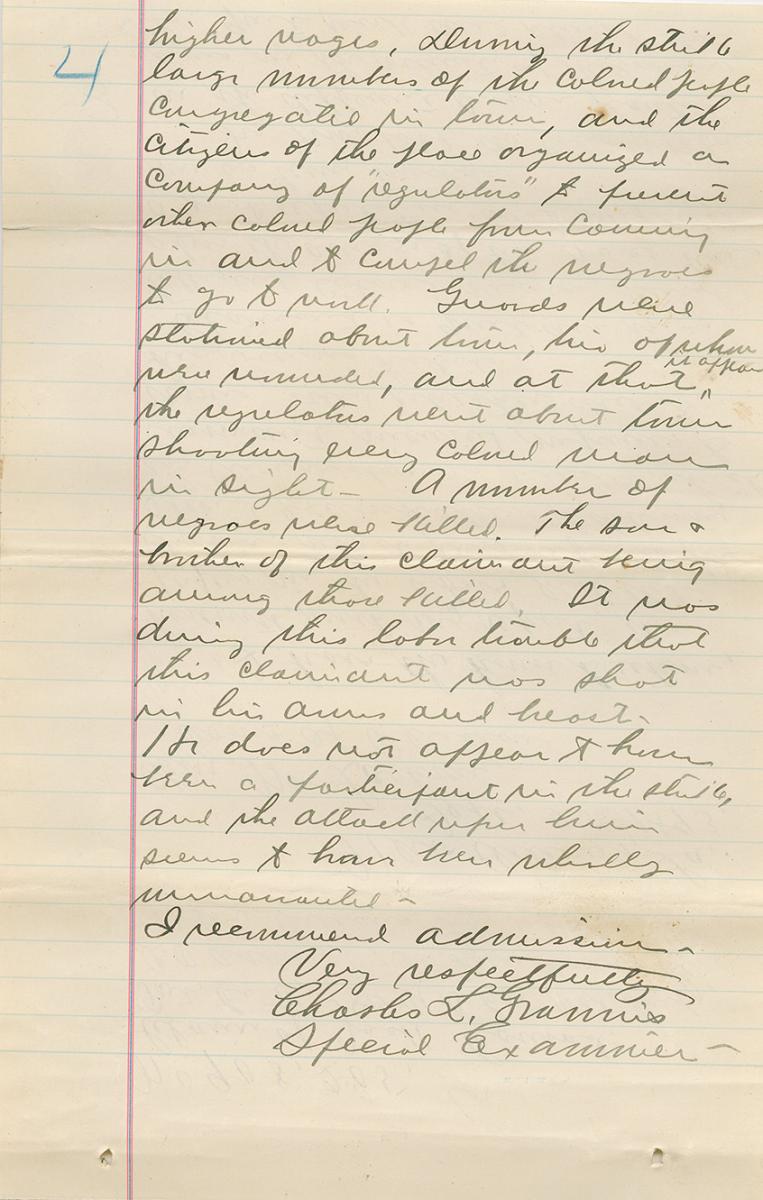 4
higher wages, During the strike
large numbers of the colored people
congregated in town, and the
citizens of the place organized a
company of "regulators" to prevent
other colored people from coming
in and to compel the negroes
to go to work. Guards were
stationed about town, two of whom
were wounded, and at that, it appears
the regulators went about town
shooting every colored man
in sight - A number of
negroes were killed. The son &
brother of this claimant being
among those killed. It was
during this labor trouble that
this claimant was shot
in his arms and breast -
He does not appear to have
been a participant in the strike,
and the attack upon him
seems to have been wholly
unwarranted -
I recommend admission -
Very respectfully
Charles L. Grannis
Special Examiner -